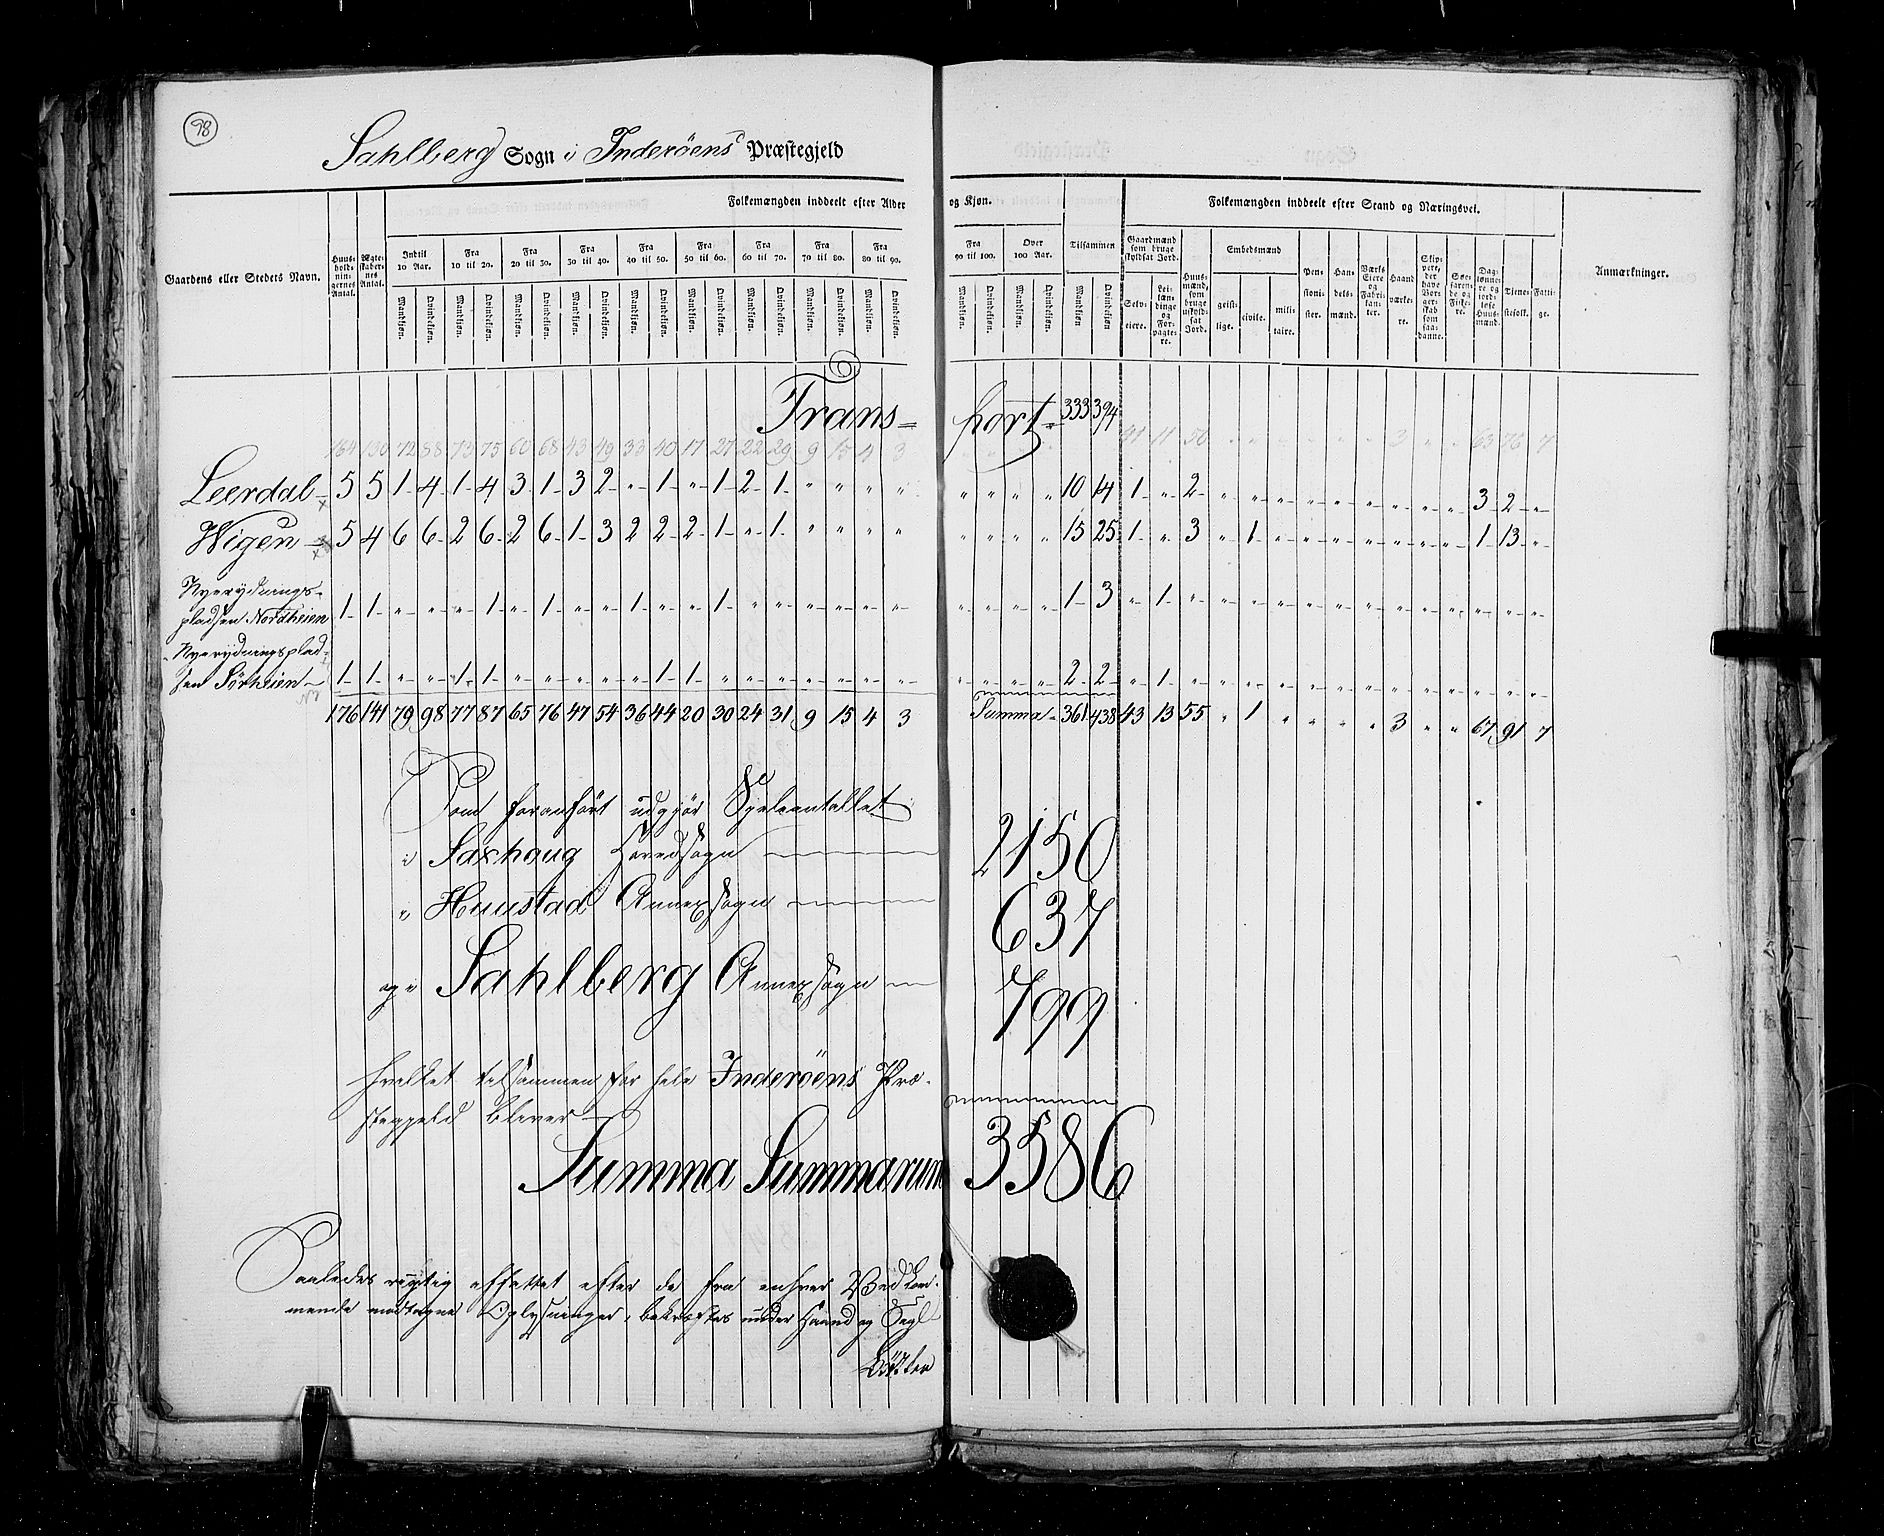 98
Sahlberg Sogn i Inderöens Præstegjeld
Folkemængden inddeelt efter Alder og Kjøn. Folkemængden inddeelt efter Stand og Næringsvei.
Gaardens eller Stedets Navn. Huusholdningernes Antal. Ægteskabernes Antal. Indtil 10 Aar. Fra 10 til 20. Fra 20 til 30. Fra 30 til 40. Fra 40 til 50. Fra 50 til 60. Fra 60 til 70. Fra 70 til 80. Fra 80 til 90. Fra 90 til 100. Over 100 Aar. Tilsammen Gaardmænd som bruge skyldsat Jord. Huusmænd, som bruge uskyldsat Jord. Embedsmænd Pensionister. Handelsmænd. Værks Eiere og Fabrikanter. Haandværkere. Skippere, der have Borgerskab som saadanne. Søefarende og Fiskere. Daglønnere og jordløse Huusmænd. Tjenestefolk. Fattige. Anmærkninger.
Mandkjøn. Qvindekjøn. Mandkjøn. Qvindekjøn. Mandkjøn. Qvindekjøn. Mandkjøn. Qvindekjøn. Mandkjøn. Qvindekjøn. Mandkjøn. Qvindekjøn. Mandkjøn. Qvindekjøn. Mandkjøn. Qvindekjøn. Mandkjøn. Qvindekjøn. Mandkjøn. Qvindekjøn. Mandkjøn. Qvindekjøn. Mandkjøn Qvindekjøn. Selveiere. Leilændinge og Forpagtere. geistlige. civile. militaire.
Trans= port 333 394
164 130 72 88 73 75 60 68 43 49 33 40 17 27 22 29 9 15 4 3 41 11 50 " " " " " " 3 " " 63 76 7
Leerdal 5 5 1 4 1 4 3 1 3 2 " 1 " 1 2 1 " " " " " " " " 10 14 1 " 2 " " " " " " " " " 3 2 "
Wigen 5 4 6 6 2 6 2 6 1 3 2 2 2 1 " 1 " " " " " " " " 15 25 1 " 3 " 1 " " " " " " " 1 13 "
Nyerydnings-
pladsen Nordheien 1 1 " " " 1 " 1 " " 1 " " 1 " " " " " " " " " " 1 3 " 1 " " " " " " " " " " " " "
Nyerydningsplad-
sen Sörheien 1 1 " " 1 1 " " " " " 1 1 " " " " " " " " " " " 2 2 " 1 " " " " " " " " " " " " "
176 141 79 98 77 87 65 76 47 54 36 44 20 30 24 31 9 15 4 3 Summa 361 438 43 13 55 " 1 " " " " 3 " " 67 91 7
Som foranfört udgjör Sjeleantallet
i Saxhoug Hovedsogn 2150
" Huustad Annexsogn 637
og i Sahlberg Annexsogn 799
hvilket tilsammen for hele Inderöens Præ-
stegjeld bliver
Summa Summarum 3586
Saaledes rigtig affattet efter de fra enhver Vedkom-
mende modtagne Oplysninger, bekræftes under Haand og Segl